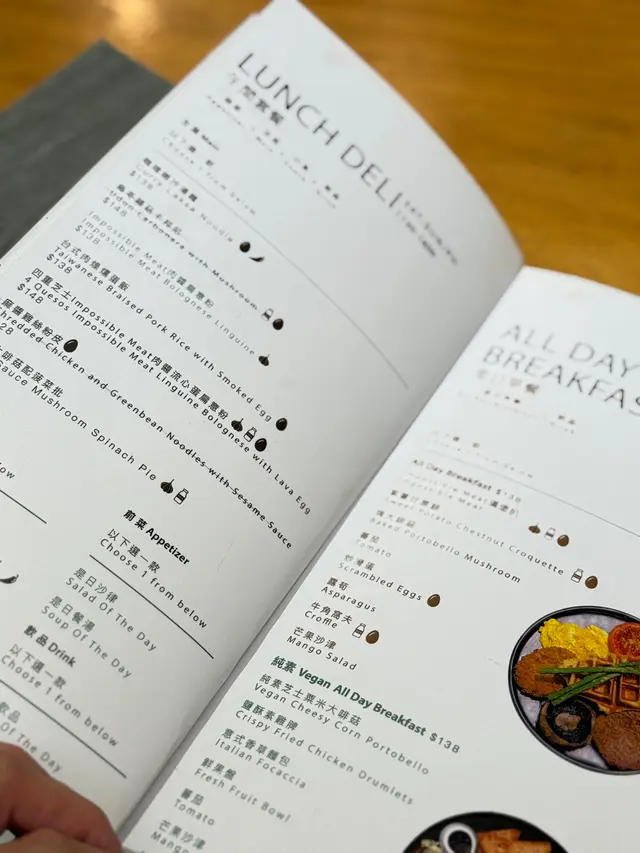 LUNCH DELI
午間套餐
主菜 Main
Choose 1 from below
Curry Laksa Noodle
$138
Udon Carbonara with Mushroom
$148
Impossible Meat肉醬扁意粉
Impossible Meat Bolognese Linguine
$138
台式肉燥燻蛋飯
Taiwanese Braised Pork Rice with Smoked Egg
$138
四重芝士Impossible Meat肉醬流心蛋扁意粉
4 Quesos Impossible Meat Linguine Bolognese with Lava Egg
$148
麻醬雞絲粉皮
Shredded Chicken and Greenbean Noodles with Sesame Sauce
28
啡菇配菠菜批
Sauce Mushroom Spinach Pie
low
前菜 Appetizer
以下選一款
Choose 1 from below
是日沙律
Salad Of The Day
是日餐湯
Soup Of The Day
飲品 Drink
以下選一款
Choose 1 from below
飲品
Of The Day
ALL DAY
BREAKFAS
All Day Breakfast $138
Sweet Potato Chestnut Croquette
Baked Portobello Mushroom
蕃茄
Tomato
炒滑蛋
Scrambled Eggs
露筍
Asparagus
牛角窩夫
Croffle
芒果沙津
Mango Salad
純素 Vegan All Day Breakfast $138
純素芝士粟米大啡菇
Vegan Cheesy Corn Portobello
鹽酥素雞髀
Crispy Fried Chicken Drumlets
意式香草麵包
Italian Focaccia
鮮果盤
Fresh Fruit Bowl
蕃茄
Tomato
芒果沙津
Mango